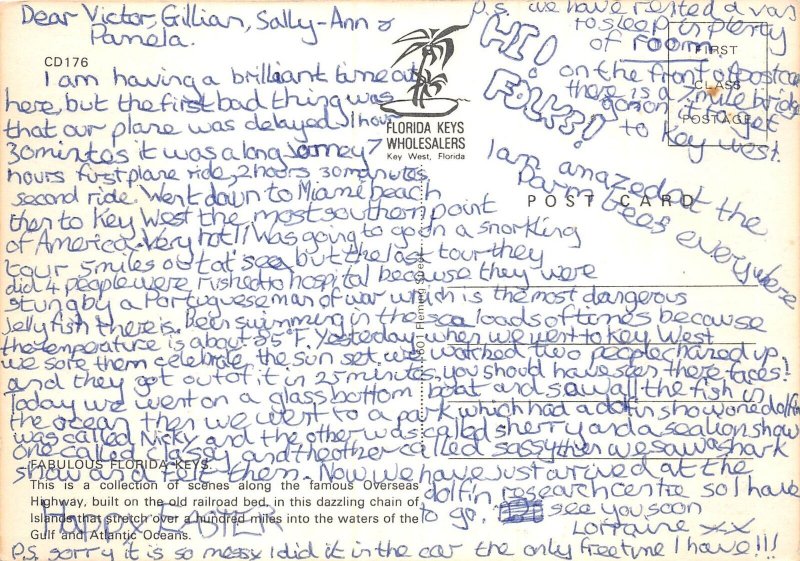 Dear Victor, Gillian, Sally-Ann &
Pamela.
CD176
I am having a brilliant time out
here, but the first bad thing was
that our plane was delayed 1 hour
30 minutes it was a long Jorney 7
hours first plane ride, 2 hours 30 minutes
second ride. Went down to Miami beach
then to Key West the most southern point
of America. Very hot!! Was going to go on a snorkling
tour 5 miles out at sea but the last tour they
did 4 people were rushed to hospital because they were
stung by a Portuguese man of war which is the most dangerous
jelly fish there is. Been swimming in the sea loads of times because
the temperature is about 85°F. Yesterday when we went to Key West
we sore them celebrate the sun set, we watched two people chained up
and they got out of it in 25 minutes, you should have seen there faces!
Today we went on a glass bottom boat and saw all the fish in
the ocean then we went to a park which had a dolfin show one dolfin
was called Nicky and the other was called sherry and a sealion show
one called classey and the other called sassy then we saw a shark
show and them. Now we have just arrived at the
dolfin research centre so I have
to go. see you soon
Lorraine xx
Happy EASTER
P.S. sorry it is so messy I did it in the car the only free time I have!!!
P.S. we have rented a van
to sleep in plenty
of room
on the front of postcard
there is a 7 mile bridge
gon on it to get
to Key West.
HI!
FOLKS!
I am amazed at the
Parm trees everywhere
FLORIDA KEYS
WHOLESALERS
Key West, Florida
FIRST
CLASS
POSTAGE
POST CARD
1601 Fleming Street
FABULOUS FLORIDA KEYS
This is a collection of scenes along the famous Overseas
Highway, built on the old railroad bed, in this dazzling chain of
Islands that stretch over a hundred miles into the waters of the
Gulf and Atlantic Oceans.